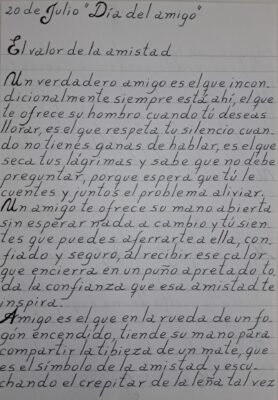 20 de Julio "Día del amigo"
El valor de la amistad
Un verdadero amigo es el que incon_
dicionalmente siempre está ahí, el que
te ofrece su hombro cuando tú deseas
llorar, es el que respeta tu silencio cuan_
do no tienes ganas de hablar, es el que
seca tus lágrimas y sabe que no debe
preguntar, porque espera que tú le
cuentes y juntos el problema aliviar.
Un amigo te ofrece su mano abierta
sin esperar nada a cambio y tú sien_
tes que puedes aferrarte a ella, con_
fiado y seguro, al recibir ese calor
que encierra en un puño apretado to_
da la confianza que esa amistad te
inspira.
Amigo es el que en la rueda de un fo_
gón encendido, tiende su mano para
compartir la tibieza de un mate, que
es el símbolo de la amistad y escu_
chando el crepitar de la leña tal vez